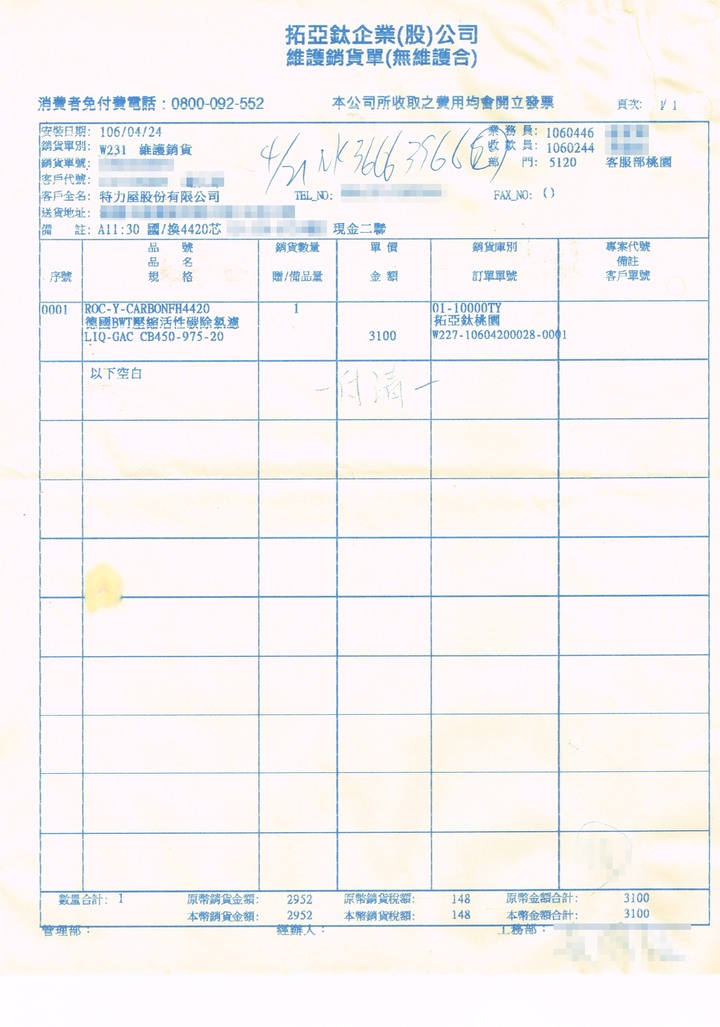 拓亞鈦企業(股)公司
維護銷貨單(無維護合)
消費者免付費電話：0800-092-552 本公司所收取之費用均會開立發票 頁次: 1/ 1
安裝日期: 106/04/24 業 務 員: 1060446
銷貨單別: W231 維護銷貨 收 款 員: 1060244
銷貨單號: 部 門: 5120 客服部桃園
客戶代號:
客戶全名: 特力屋股份有限公司 TEL_NO: FAX_NO: ()
送貨地址:
備 註: A11:30 國/換4420芯 現金二聯
品 號 銷貨數量 單 價 銷貨庫別 專案代號
品 名 備註
序號 規 格 贈/備品量 金 額 訂單單號 客戶單號
0001 ROC-Y-CARBONFH4420 1 01-10000TY
德國BWT壓縮活性碳除氯濾 拓亞鈦桃園
LIQ-GAC CB450-975-20 3100 W227-10604200028-0001
以下空白
-付清-
數量合計: 1 原幣銷貨金額: 2952 原幣銷貨稅額: 148 原幣金額合計: 3100
本幣銷貨金額: 2952 本幣銷貨稅額: 148 本幣金額合計: 3100
管理部： 經辦人： 工務部：